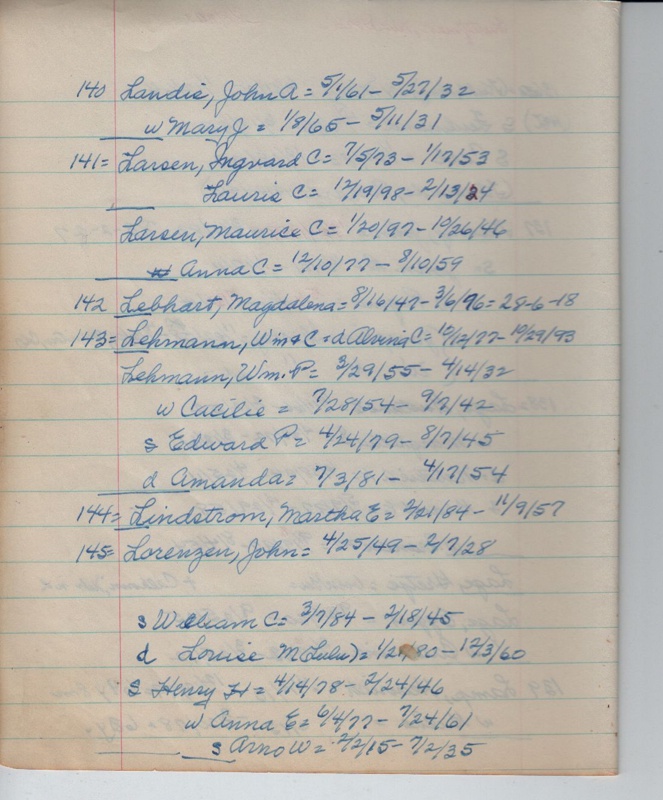 140 Landis, John A = 5/1/61 - 5/27/32
w Mary J = 1/8/65 - 5/11/31
141= Larsen, Ingvard C = 7/5/73 - 1/17/53
Lauris C = 12/19/98 - 2/13/24
Larsen, Maurice C = 1/20/97 - 10/26/46
Anna C = 12/10/77 - 8/10/59
142 Lebhart, Magdalena = 8/16/47 - 3/6/76 = 28-6-18
143= Lehmann, Wm & C = d Alvina C = 10/12/77 - 10/29/93
Lehmann, Wm. P = 3/29/55 - 4/14/32
w Cacilie = 7/28/54 - 9/7/42
s Edward P = 4/24/79 - 8/7/45
d Amanda = 7/3/81 - 4/17/54
144= Lindstrom, Martha E = 2/21/84 - 11/9/57
145= Lorenzen, John = 4/25/49 - 2/7/28
s William C = 3/7/84 - 2/18/45
d Louise M (Lulu) = - 12/3/60
s Henry H = 4/14/78 - 2/24/46
w Anna E = 6/4/77 - 7/24/61
s Arno W = 2/2/15 - 7/2/35